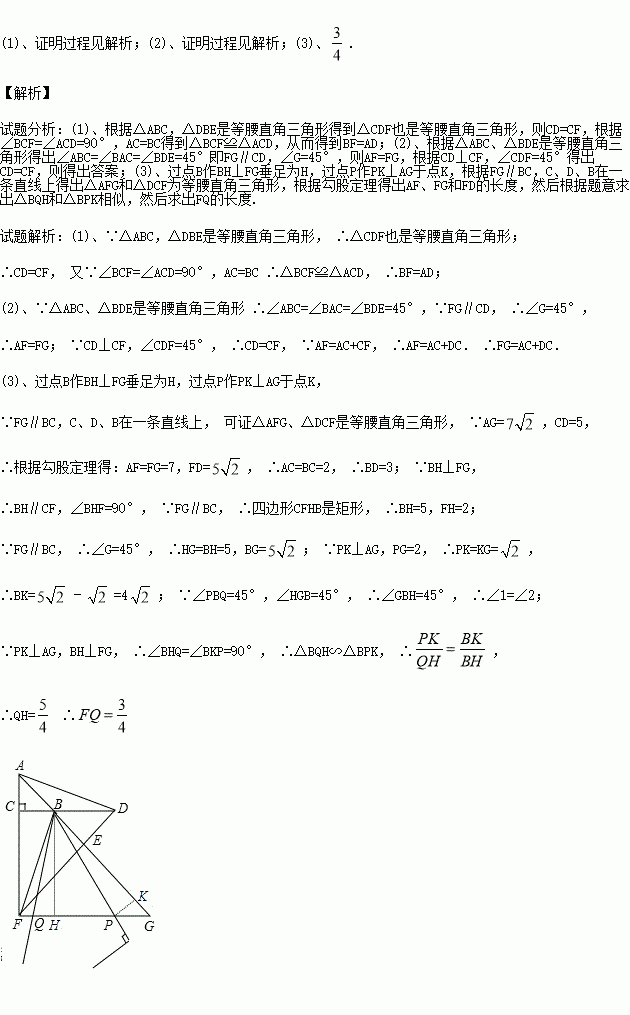 (1)、证明过程见解析;(2)、证明过程见解析;(3)、3/4.
【解析】
试题分析:(1)、根据△ABC,△DBE是等腰直角三角形得到△CDF也是等腰直角三角形,则CD=CF,根据
∠BCF=∠ACD=90°,AC=BC得到△BCF≌△ACD,从而得到BF=AD;(2)、根据△ABC、△BDE是等腰直角三
角形得出∠ABC=∠BAC=∠BDE=45°即FG∥CD,∠G=45°,则AF=FG,根据CD⊥CF,∠CDF=45°得出
CD=CF,则得出答案;(3)、过点B作BH⊥FG垂足为H,过点P作PK⊥AG于点K,根据FG∥BC,C、D、B在一
条直线上得出△AFG和△DCF为等腰直角三角形,根据勾股定理得出AF、FG和FD的长度,然后根据题意求
出△BQH和△BPK相似,然后求出FQ的长度.
试题解析:(1)、∵△ABC,△DBE是等腰直角三角形, ∴△CDF也是等腰直角三角形;
∴CD=CF, 又∵∠BCF=∠ACD=90°,AC=BC ∴△BCF≌△ACD, ∴BF=AD;
(2)、∵△ABC、△BDE是等腰直角三角形 ∴∠ABC=∠BAC=∠BDE=45°,∵FG∥CD, ∴∠G=45°,
∴AF=FG; ∵CD⊥CF,∠CDF=45°, ∴CD=CF, ∵AF=AC+CF, ∴AF=AC+DC. ∴FG=AC+DC.
(3)、过点B作BH⊥FG垂足为H,过点P作PK⊥AG于点K,
∵FG∥BC,C、D、B在一条直线上, 可证△AFG、△DCF是等腰直角三角形, ∵AG=7√2,CD=5,
∴根据勾股定理得:AF=FG=7,FD=5√2, ∴AC=BC=2, ∴BD=3; ∵BH⊥FG,
∴BH∥CF,∠BHF=90°, ∵FG∥BC, ∴四边形CFHB是矩形, ∴BH=5,FH=2;
∵FG∥BC, ∴∠G=45°, ∴HG=BH=5,BG=5√2; ∵PK⊥AG,PG=2, ∴PK=KG=√2,
∴BK=5√2-√2=4√2; ∵∠PBQ=45°,∠HGB=45°, ∴∠GBH=45°, ∴∠1=∠2;
∵PK⊥AG,BH⊥FG, ∴∠BHQ=∠BKP=90°, ∴△BQH∽△BPK, ∴PK/QH=BK/BH,
∴QH=5/4 ∴FQ=3/4
A
C B D
E
K
F Q H P G